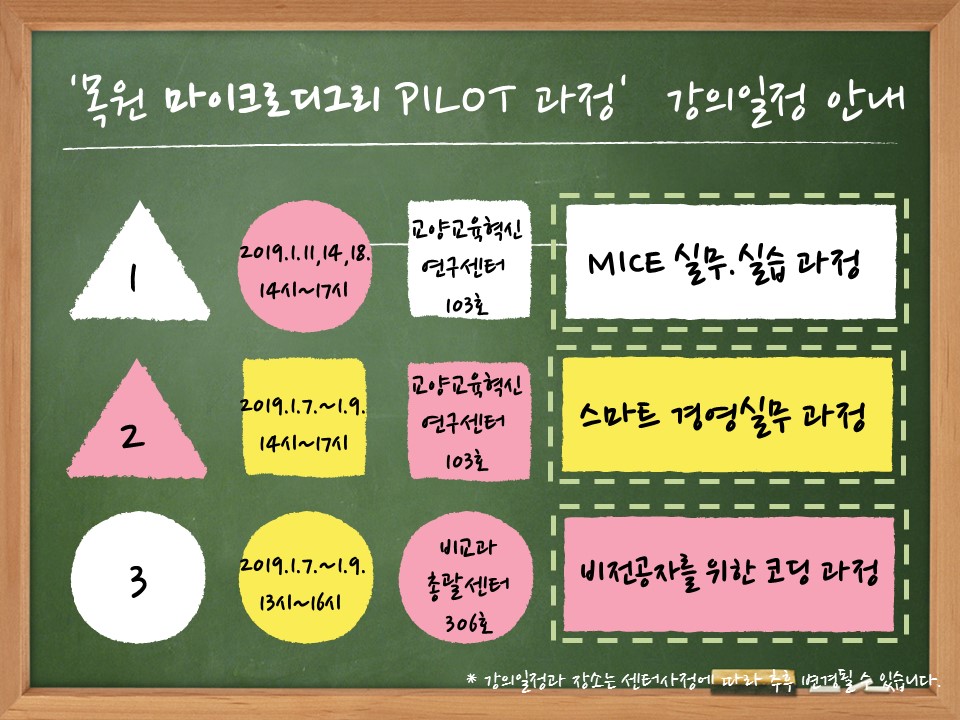 '목원 마이크로디그리 PILOT 과정' 강의일정 안내
1
2019.1.11,14,18.
14시~17시
교양교육혁신
연구센터
103호
MICE 실무.실습 과정
2
2019.1.7.~1.9.
14시~17시
교양교육혁신
연구센터
103호
스마트 경영실무 과정
3
2019.1.7.~1.9.
13시~16시
비교과
총괄센터
306호
비전공자를 위한 코딩 과정
* 강의일정과 장소는 센터사정에 따라 추후 변경될 수 있습니다.